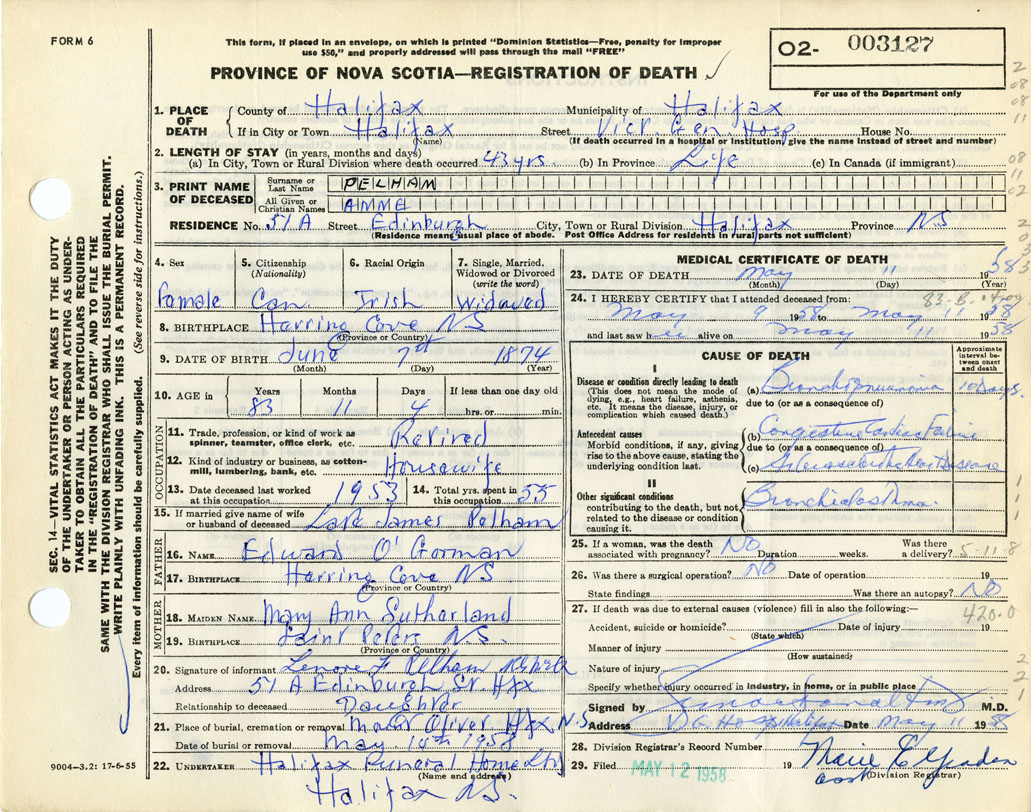 FORM 6
This form, if placed in an envelope, on which is printed "Dominion Statistics—Free, penalty for improper
use $50," and properly addressed will pass through the mail "FREE"
PROVINCE OF NOVA SCOTIA—REGISTRATION OF DEATH ✓
02- 003127
For use of the Department only
SEC. 14—VITAL STATISTICS ACT MAKES IT THE DUTY
OF THE UNDERTAKER OR PERSON ACTING AS UNDER-
TAKER TO OBTAIN ALL THE PARTICULARS REQUIRED
IN THE "REGISTRATION OF DEATH" AND TO FILE THE
SAME WITH THE DIVISION REGISTRAR WHO SHALL ISSUE THE BURIAL PERMIT.
WRITE PLAINLY WITH UNFADING INK. THIS IS A PERMANENT RECORD.
Every item of information should be carefully supplied. (See reverse side for instructions.)
1. PLACE OF DEATH
County of Halifax Municipality of Halifax
If in City or Town Halifax Street Vict. Gen. Hosp House No.
(Name) (If death occurred in a hospital or institution, give the name instead of street and number)
2. LENGTH OF STAY (in years, months and days)
(a) In City, Town or Rural Division where death occurred 43 yrs. (b) In Province Life (c) In Canada (if immigrant)
3. PRINT NAME OF DECEASED
Surname or Last Name PELHAM
All Given or Christian Names AMME
RESIDENCE No. 51 A Street Edinburgh City, Town or Rural Division Halifax Province NS
(Residence means usual place of abode. Post Office Address for residents in rural parts not sufficient)
4. Sex Female
5. Citizenship (Nationality) Can.
6. Racial Origin Irish
7. Single, Married, Widowed or Divorced (write the word) Widowed
8. BIRTHPLACE Herring Cove NS
(Province or Country)
9. DATE OF BIRTH June 7th 1874
(Month) (Day) (Year)
10. AGE in Years 83 Months 11 Days 4 If less than one day old hrs. or min.
OCCUPATION
11. Trade, profession, or kind of work as spinner, teamster, office clerk, etc. Retired
12. Kind of industry or business, as cotton-mill, lumbering, bank, etc. Housewife
13. Date deceased last worked at this occupation 1953
14. Total yrs. spent in this occupation 55
15. If married give name of wife or husband of deceased Late James Pelham
FATHER
16. NAME Edward O'Gorman
17. BIRTHPLACE Herring Cove NS
(Province or Country)
MOTHER
18. MAIDEN NAME Mary Ann Sutherland
19. BIRTHPLACE Saint Peters NS.
(Province or Country)
20. Signature of informant Lenore F Pelham
Address 51 A Edinburgh St. Hfx
Relationship to deceased Daughter
21. Place of burial, cremation or removal Mount Olivet Hfx N.S
Date of burial or removal May 14th 1958
22. UNDERTAKER Halifax Funeral Home Ltd
(Name and address)
Halifax NS.
9004—3.2: 17-6-55
MEDICAL CERTIFICATE OF DEATH
23. DATE OF DEATH May 11 1958
(Month) (Day) (Year)
24. I HEREBY CERTIFY that I attended deceased from:
May 9 1958 to May 11 1958
and last saw her alive on May 11 1958
CAUSE OF DEATH
Approximate interval between onset and death
I
Disease or condition directly leading to death
(This does not mean the mode of dying, e.g., heart failure, asthenia, etc. It means the disease, injury, or complication which caused death.)
(a) Bronchopneumonia 10 days.
due to (or as a consequence of)
Antecedent causes
Morbid conditions, if any, giving rise to the above cause, stating the underlying condition last.
(b) Congestive Cardiac Failure
due to (or as a consequence of)
(c) Arteriosclerotic Heart Disease
II
Other significant conditions
contributing to the death, but not related to the disease or condition causing it.
Bronchial asthma.
25. If a woman, was the death associated with pregnancy? No Duration weeks. Was there a delivery? 5-11-8
26. Was there a surgical operation? No Date of operation 19
State findings Was there an autopsy? No
27. If death was due to external causes (violence) fill in also the following:— 420.0
Accident, suicide or homicide? Date of injury 19
(State which)
Manner of injury
(How sustained)
Nature of injury
Specify whether injury occurred in industry, in home, or in public place
Signed by M.D.
Address V G Hosp Halifax Date May 11 1958
28. Division Registrar's Record Number
29. Filed MAY 12 1958 19 Marie E
(Division Registrar)